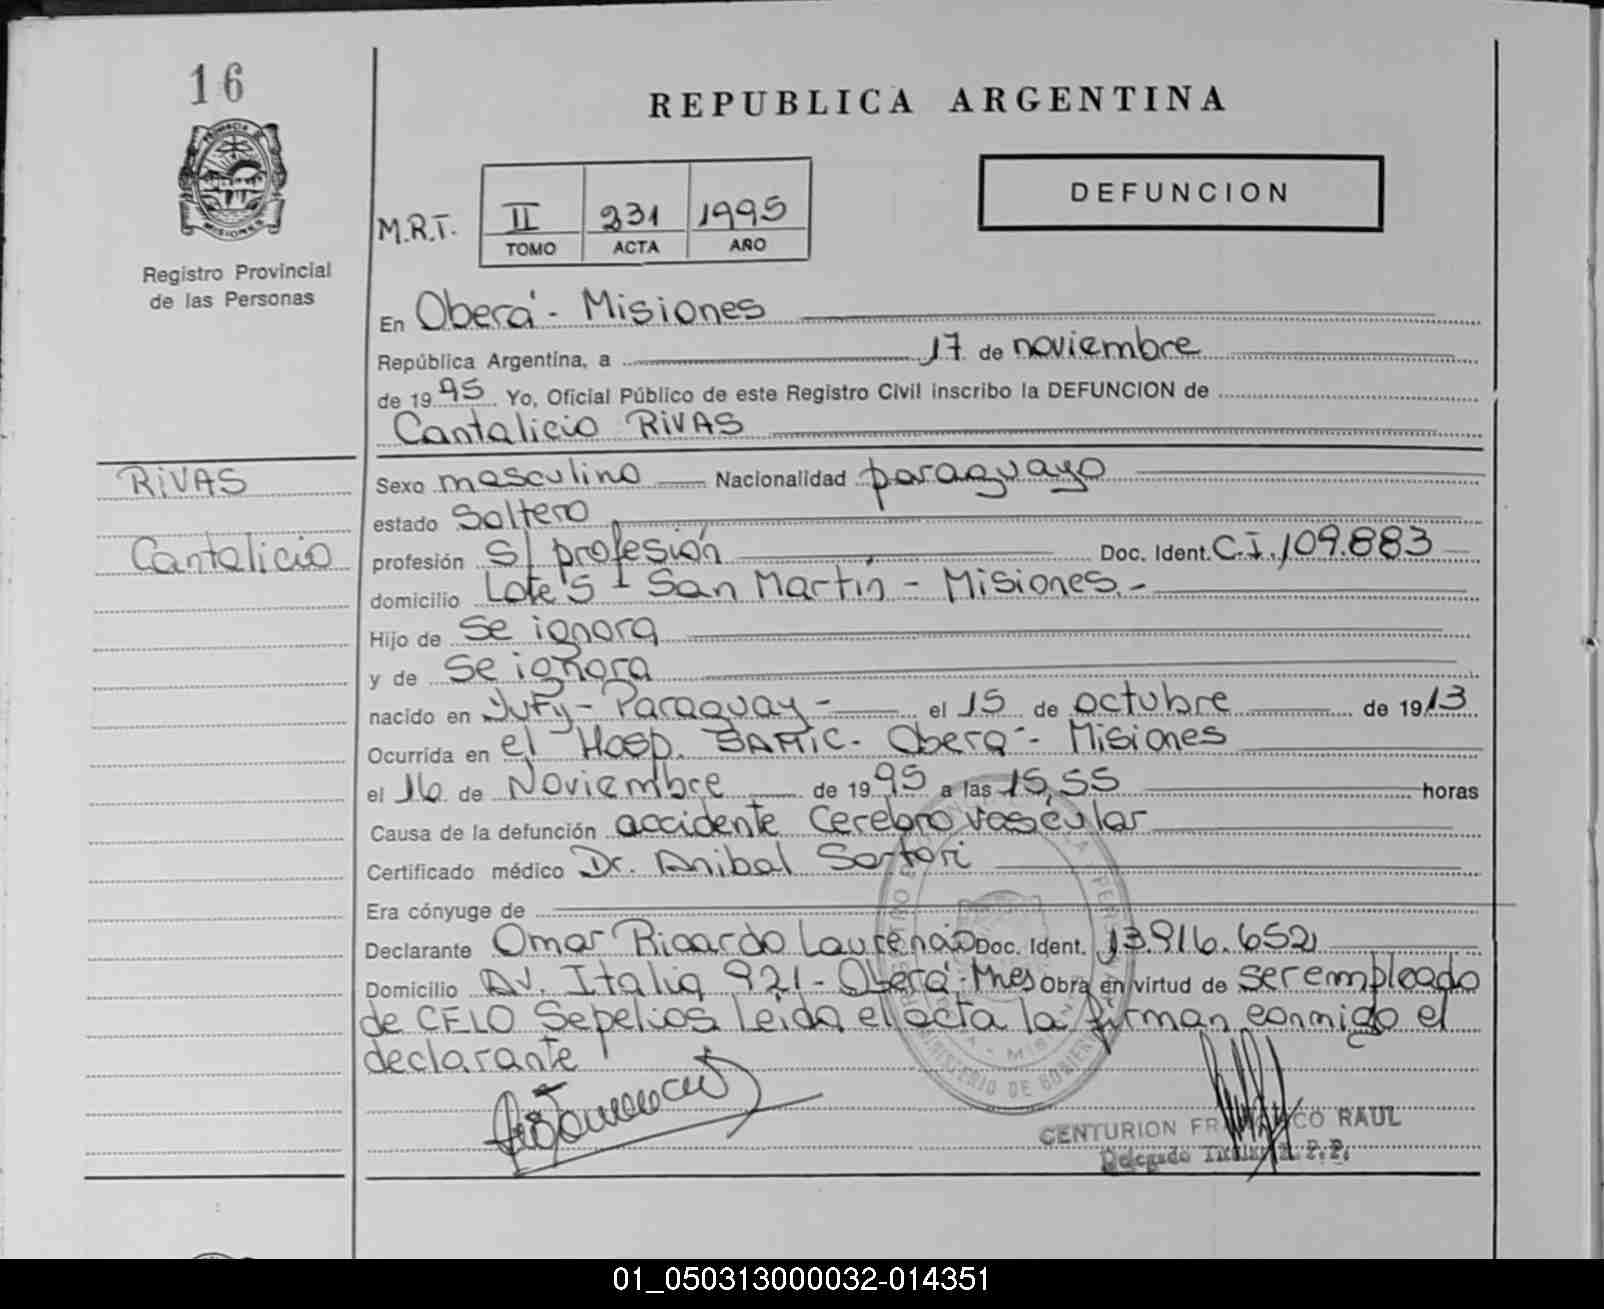 16
REPUBLICA ARGENTINA
DEFUNCION
PROVINCIA DE
MISIONES
Registro Provincial
de las Personas
M.R.T. II 231 1995
TOMO ACTA AÑO
En Oberá - Misiones
República Argentina, a 17 de noviembre
de 1995 Yo, Oficial Público de este Registro Civil inscribo la DEFUNCION de
Cantalicio RIVAS
RIVAS
Cantalicio
Sexo masculino Nacionalidad paraguayo
estado Soltero
profesión S/ profesión Doc. Ident. C.I. 109.883
domicilio Lote 5 - San Martín - Misiones.-
Hijo de se ignora
y de se ignora
nacido en Yuty - Paraguay - el 15 de octubre de 1913
Ocurrida en el Hosp. SAMIC - Oberá - Misiones
el 16 de Noviembre de 1995 a las 15,55 horas
Causa de la defunción accidente cerebro vascular
Certificado médico Dr. Anibal Sartori
Era cónyuge de
Declarante Omar Ricardo Doc. Ident. 13.916.652
Domicilio Av. Italia 921 - Oberá - Mnes Obra en virtud de ser empleado
de CELO Sepelios Leida el acta la firman conmigo el
declarante
MINISTERIO DE GOBIERNO
CENTURION FRANCISCO RAUL
Delegado Titular R.P.P.
01_050313000032-014351